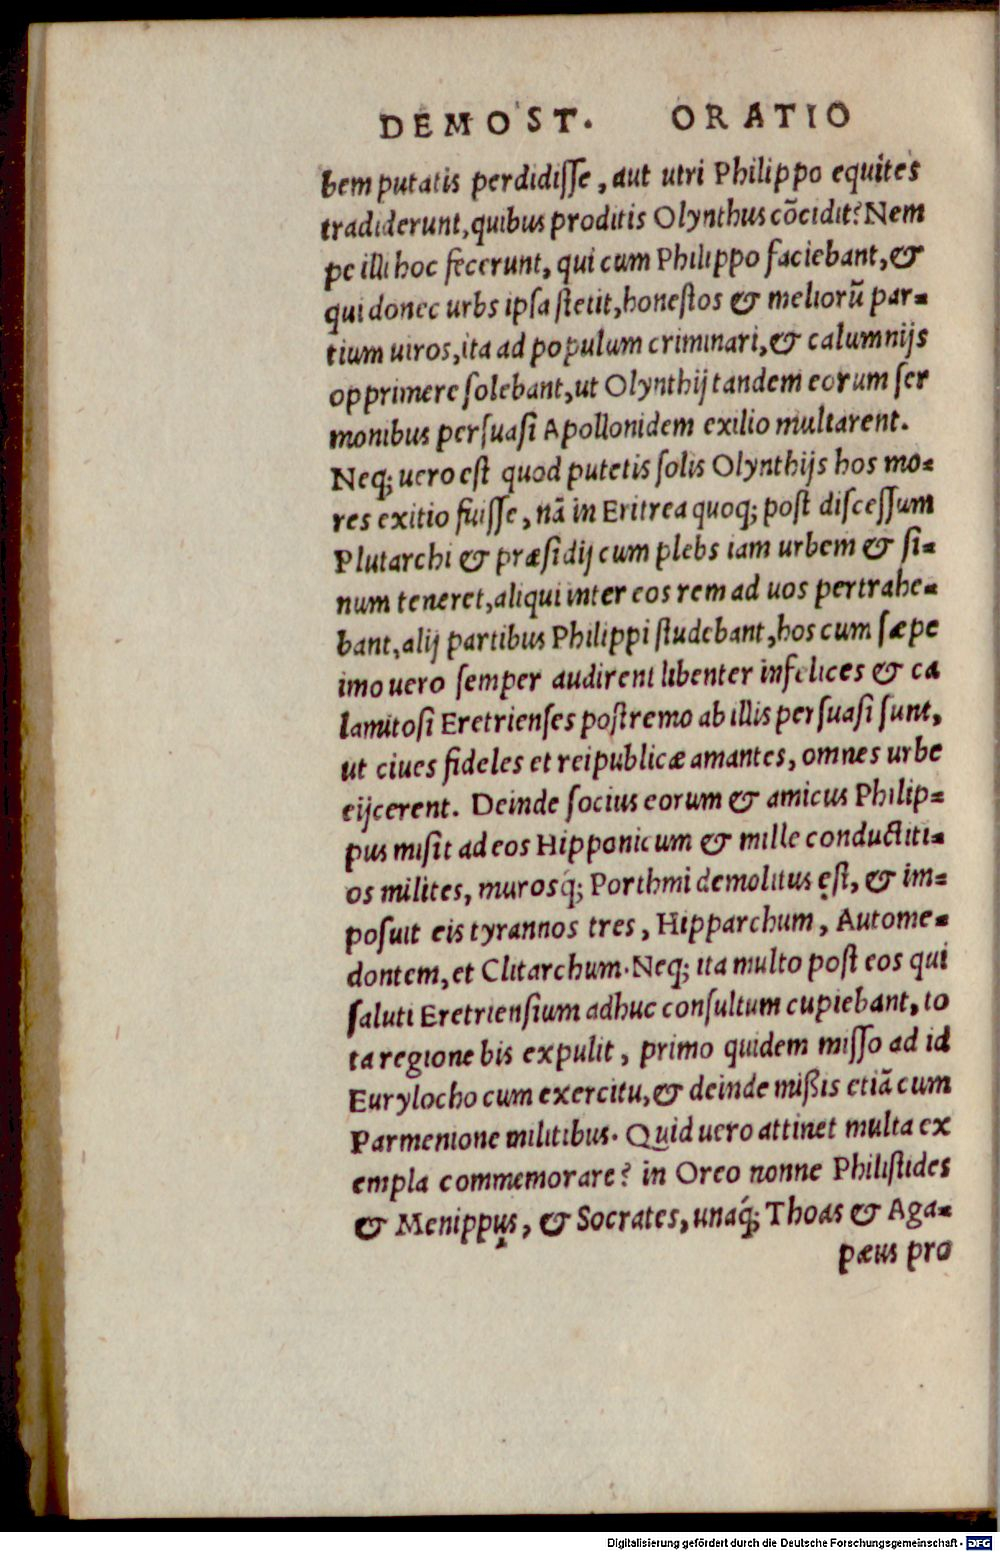 DEMOST. ORATIO
bem putatis perdidiſſe, aut utri Philippo equites
tradiderunt, quibus proditis Olynthus cõcidit? Nem
pe illi hoc fecerunt, qui cum Philippo faciebant, &
qui donec urbs ipſa ſtetit, honeſtos & meliorũ par-
tium uiros, ita ad populum criminari, & calumnijs
opprimere ſolebant, ut Olynthij tandem eorum ſer
monibus perſuaſi Apollonidem exilio multarent.
Neq; uero eſt quod putetis ſolis Olynthijs hos mo-
res exitio fuiſſe, nã in Eritrea quoq; poſt diſceſſum
Plutarchi & præſidij cum plebs iam urbem & ſi-
num teneret, aliqui inter eos rem ad uos pertrahe-
bant, alij partibus Philippi ſtudebant, hos cum ſæpe
imo uero ſemper audirent libenter infelices & ca
lamitoſi Eretrienſes poſtremo ab illis perſuaſi ſunt,
ut ciues fideles et reipublicæ amantes, omnes urbe
eijcerent. Deinde ſocius eorum & amicus Philip-
pus miſit ad eos Hipponicum & mille conductiti-
os milites, murosq́; Porthmi demolitus ęſt, & im-
poſuit eis tyrannos tres, Hipparchum, Autome-
dontem, et Clitarchum. Neq; ita multo poſt eos qui
ſaluti Eretrienſium adhuc conſultum cupiebant, to
ta regione bis expulit, primo quidem miſſo ad id
Eurylocho cum exercitu, & deinde mißis etiã cum
Parmenione militibus. Quid uero attinet multa ex
empla commemorare? in Oreo nonne Philiſtides
& Menippus, & Socrates, unaq́; Thoas & Aga-
pæus pro
Digitalisierung gefördert durch die Deutsche Forschungsgemeinschaft - DFG